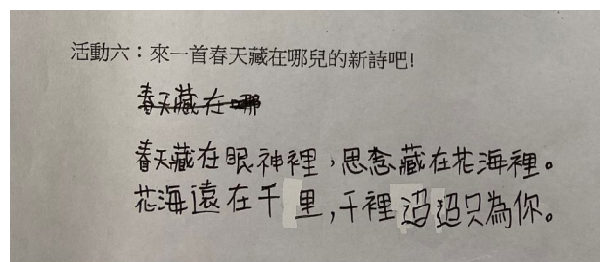 活動六：來一首春天藏在哪兒的新詩吧!
春天藏在哪
春天藏在眼神裡，思念藏在花海裡。
花海遠在千里，千裡迢迢只為你。